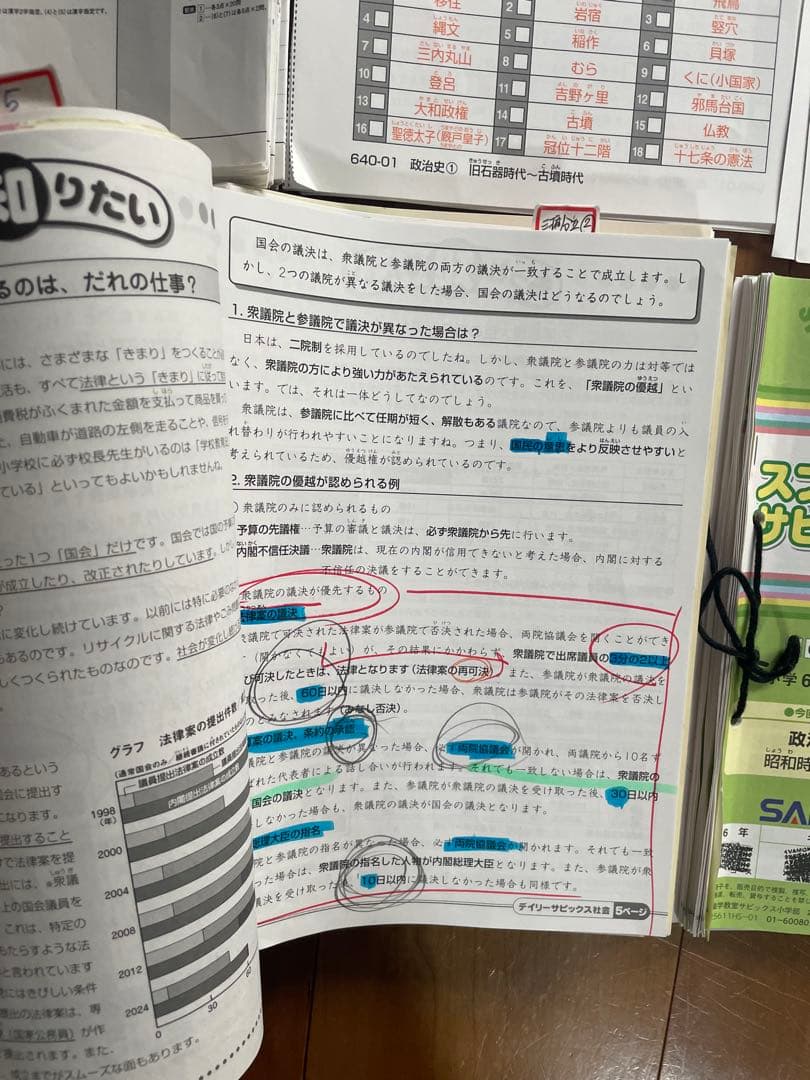 は漢字2字指定、(4)と(5)は漢字指定です。
移住
2
岩宿
3
飛鳥
4
縄文
5
稲作
竪穴
7
三内丸山
8
むら
6
貝塚
10
登呂
11
吉野ヶ里
9
くに(小国家)
13
大和政権
14
古墳
12
邪馬台国
16
聖徳太子(厩戸皇子)
17
冠位十二階
15
仏教
18
十七条の憲法
640-01 政治史① 旧石器時代~古墳時代
5
知りたい
るのは、だれの仕事?
には、さまざまな「きまり」をつくること
活も、すべて法律という「きまり」に従って
消費税がふくまれた金額を支払って商品を買っ
た、自動車が道路の左側を走ることや、信号を
小学校に必ず校長先生がいるのは「学校教育法
ている」といってもよいかもしれませんね。
った1つ「国会」だけです。国会では国の予算
が成立したり、改正されたりしています。しかし
?
に変化し続けています。以前には特に必要のな
もあるのです。リサイクルに関する法律やごみ問題
しくつくられたものなのです。社会が変化し続ける
グラフ 法律案の提出件数
(通常国会のみ)
議員提出法律案の成立数
内閣提出法律案の成立数
1998
(年)
2000
2004
2008
2012
2024
0
30
60
あるという
会に提出す
になります。
提出すること
けで法律案を提
出には、※衆議
上の国会議員を
これは、特定の
もたらすような法
と言われています
にはきびしい条件
提出の法律案は、専
(国家公務員)が作
提出されます。また、
成立までがスムーズな面もあります。
国会の議決は、衆議院と参議院の両方の議決が一致することで成立します。し
かし、2つの議院が異なる議決をした場合、国会の議決はどうなるのでしょう。
1. 衆議院と参議院で議決が異なった場合は?
日本は、二院制を採用しているのでしたね。しかし、衆議院と参議院の力は対等では
なく、衆議院の方により強い力があたえられているのです。これを、「衆議院の優越」とい
います。では、それは一体どうしてなのでしょう。
衆議院は、参議院に比べて任期が短く、解散もある議院なので、参議院よりも議員の入
れ替わりが行われやすいことになりますね。つまり、国民の意思をより反映させやすいと
考えられているため、優越権が認められているのです。
2. 衆議院の優越が認められる例
)衆議院のみに認められるもの
予算の先議権…予算の審議と議決は、必ず衆議院から先に行います。
内閣不信任決議…衆議院は、現在の内閣が信用できないと考えた場合、内閣に対する
不信任の決議をすることができます。
衆議院の議決が優先するもの
律案の議決
衆議院で可決された法律案が参議院で否決された場合、両院協議会を開くことができ
(開かなくてもよい)が、その結果にかかわらず、衆議院で出席議員の3分の2以上
び可決したときは、法律となります(法律案の再可決)。また、参議院が衆議院の議決を
った後、60日以内に議決しなかった場合、衆議院は参議院がその法律案を否決し
のとみなされます(みなし否決)。
案の議決、条約の承認
議院と参議院の議決が異なった場合、必ず両院協議会が開かれ、両議院から10名ず
ばれた代表者による話し合いが行われます。それでも一致しない場合は、衆議院の
国会の議決となります。また、参議院が衆議院の議決を受け取った後、30日以内
しなかった場合も、衆議院の議決が国会の議決となります。
総理大臣の指名
院と参議院の指名が異なった場合、必ず両院協議会が開かれます。それでも一致
った場合は、衆議院の指名した人物が内閣総理大臣となります。また、参議院が衆
議決を受け取った後、10日以内に議決しなかった場合も同様です。
デイリーサピックス社会 5ページ
小学6
政治
昭和時
6 年
5611HS-01
01-60080